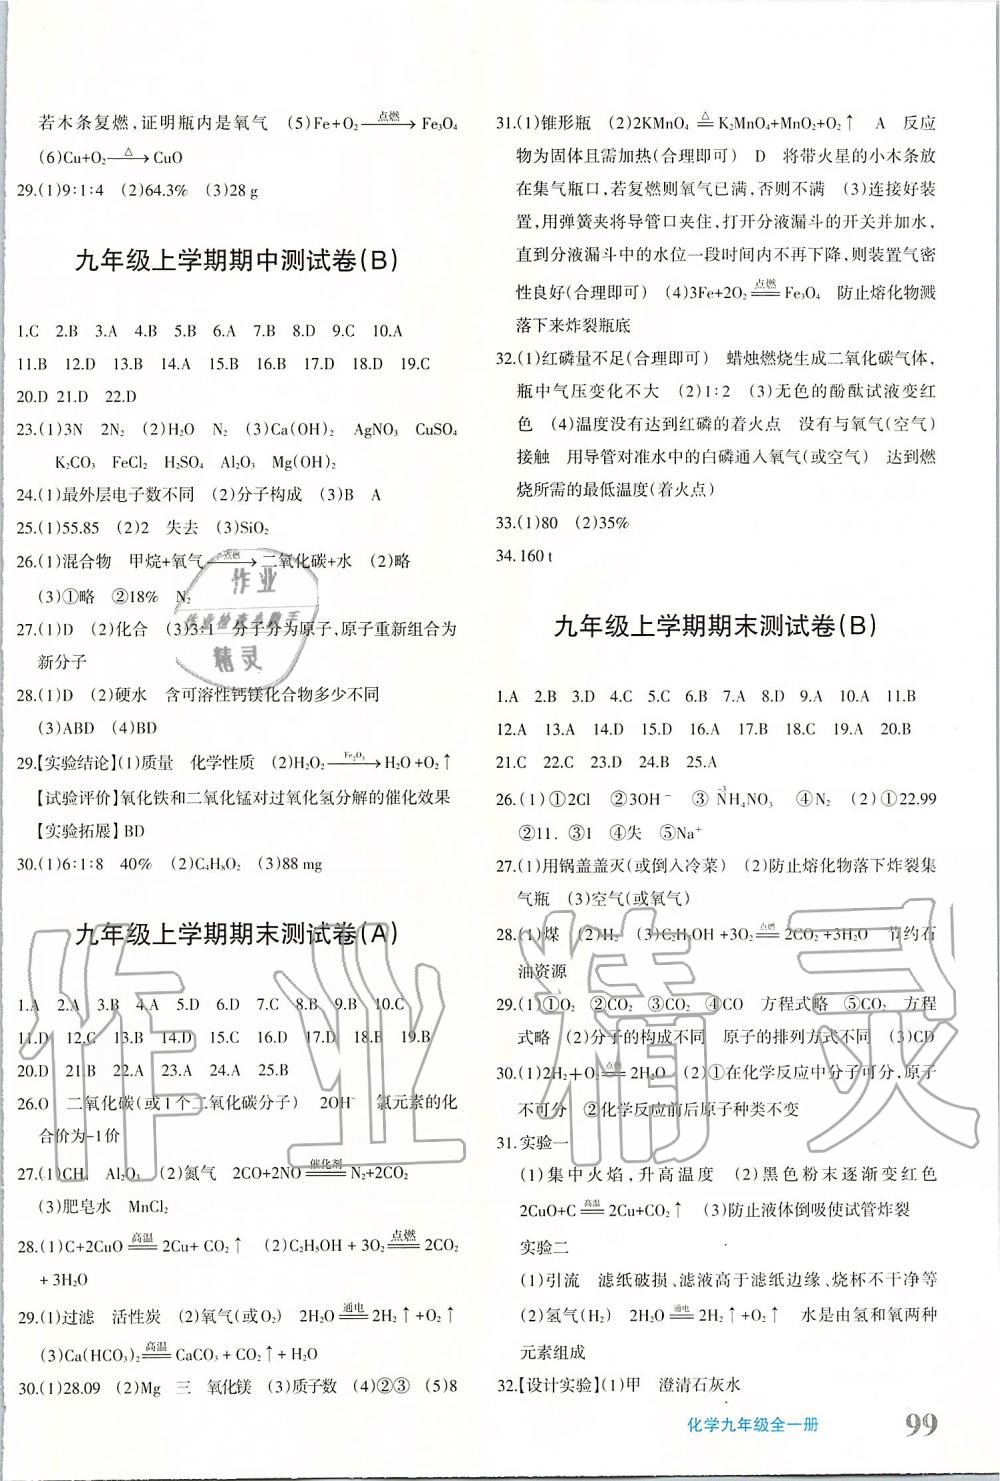 若木条复燃,证明瓶内是氧气 (5)Fe+O₂ 点燃→ Fe₃O₄
(6)Cu+O₂ △→ CuO
29.(1)9∶1∶4 (2)64.3% (3)28 g
九年级上学期期中测试卷(B)
1.C 2.B 3.A 4.B 5.B 6.A 7.B 8.D 9.C 10.A
11.B 12.D 13.B 14.A 15.D 16.D 17.C 18.D 19.C
20.D 21.D 22.D
23.(1)3N 2N₂ (2)H₂O N₂ (3)Ca(OH)₂ AgNO₃ CuSO₄
K₂CO₃ FeCl₂ H₂SO₄ Al₂O₃ Mg(OH)₂
24.(1)最外层电子数不同 (2)分子构成 (3)B A
25.(1)55.85 (2)2 失去 (3)SiO₂
26.(1)混合物 甲烷+氧气 点燃→ 二氧化碳+水 (2)略
(3)①略 ②18% N₂
27.(1)D (2)化合 (3)3∶1 分子分为原子,原子重新组合为
新分子
28.(1)D (2)硬水 含可溶性钙镁化合物多少不同
(3)ABD (4)BD
29.【实验结论】(1)质量 化学性质 (2)H₂O₂ Fe₂O₃→ H₂O+O₂↑
【试验评价】氧化铁和二氧化锰对过氧化氢分解的催化效果
【实验拓展】BD
30.(1)6∶1∶8 40% (2)C₄H₈O₂ (3)88 mg
九年级上学期期末测试卷(A)
1.A 2.A 3.B 4.A 5.D 6.D 7.C 8.B 9.B 10.C
11.D 12.C 13.B 14.D 15.C 16.D 17.D 18.B 19.B
20.D 21.B 22.A 23.A 24.A 25.B
26.O 二氧化碳(或1个二氧化碳分子) 2OH⁻ 氯元素的化
合价为-1价
27.(1)CH₄ Al₂O₃ (2)氮气 2CO+2NO 催化剂═ N₂+2CO₂
(3)肥皂水 MnCl₂
28.(1)C+2CuO 高温═ 2Cu+CO₂↑ (2)C₂H₅OH+3O₂ 点燃═ 2CO₂
+3H₂O
29.(1)过滤 活性炭 (2)氧气(或O₂) 2H₂O 通电═ 2H₂↑+O₂↑
(3)Ca(HCO₃)₂ 高温═ CaCO₃+CO₂↑+H₂O
30.(1)28.09 (2)Mg 三 氧化镁 (3)质子数 (4)②③ (5)8
31.(1)锥形瓶 (2)2KMnO₄ △═ K₂MnO₄+MnO₂+O₂↑ A 反应
物为固体且需加热(合理即可) D 将带火星的小木条放
在集气瓶口,若复燃则氧气已满,否则不满 (3)连接好装
置,用弹簧夹将导管口夹住,打开分液漏斗的开关并加水,
直到分液漏斗中的水位一段时间内不再下降,则装置气密
性良好(合理即可) (4)3Fe+2O₂ 点燃═ Fe₃O₄ 防止熔化物溅
落下来炸裂瓶底
32.(1)红磷量不足(合理即可) 蜡烛燃烧生成二氧化碳气体,
瓶中气压变化不大 (2)1∶2 (3)无色的酚酞试液变红
色 (4)温度没有达到红磷的着火点 没有与氧气(空气)
接触 用导管对准水中的白磷通入氧气(或空气) 达到燃
烧所需的最低温度(着火点)
33.(1)80 (2)35%
34.160 t
九年级上学期期末测试卷(B)
1.A 2.B 3.D 4.C 5.C 6.B 7.A 8.D 9.A 10.A 11.B
12.A 13.A 14.D 15.D 16.A 17.B 18.C 19.A 20.B
21.C 22.C 23.D 24.B 25.A
26.(1)①2Cl ②3OH⁻ ③N⁻³H₄NO₃ ④N₂ (2)①22.99
②11. ③1 ④失 ⑤Na⁺
27.(1)用锅盖盖灭(或倒入冷菜) (2)防止熔化物落下炸裂集
气瓶 (3)空气(或氧气)
28.(1)煤 (2)H₂ (3)C₂H₅OH+3O₂ 点燃═ 2CO₂+3H₂O 节约石
油资源
29.(1)①O₂ ②CO₂ ③CO₂ ④CO 方程式略 ⑤CO₂ 方程
式略 (2)分子的构成不同 原子的排列方式不同 (3)CD
30.(1)2H₂+O₂ 点燃═ 2H₂O (2)①在化学反应中分子可分,原子
不可分 ②化学反应前后原子种类不变
31.实验一
(1)集中火焰,升高温度 (2)黑色粉末逐渐变红色
2CuO+C 高温═ 2Cu+CO₂↑ (3)防止液体倒吸使试管炸裂
实验二
(1)引流 滤纸破损、滤液高于滤纸边缘、烧杯不干净等
(2)氢气(H₂) 2H₂O 通电═ 2H₂↑+O₂↑ 水是由氢和氧两种
元素组成
32.【设计实验】(1)甲 澄清石灰水
化学九年级全一册 99
作业
作业检查小助手
精灵
作业精灵